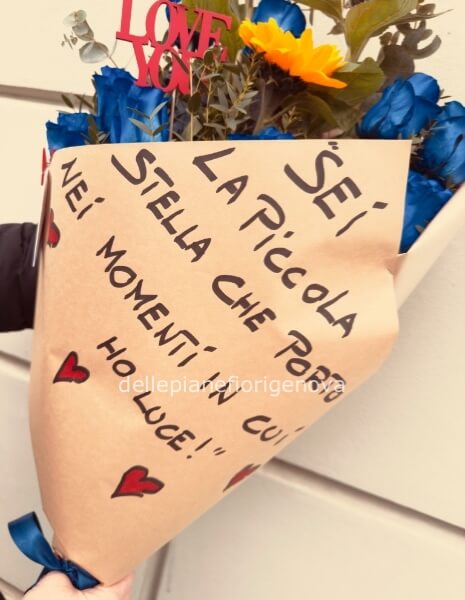 LOVE
YOU
"SEI
LA PICCOLA
STELLA CHE PORTO
NEI MOMENTI IN CUI
HO LUCE!"
dellepianefiorigenova